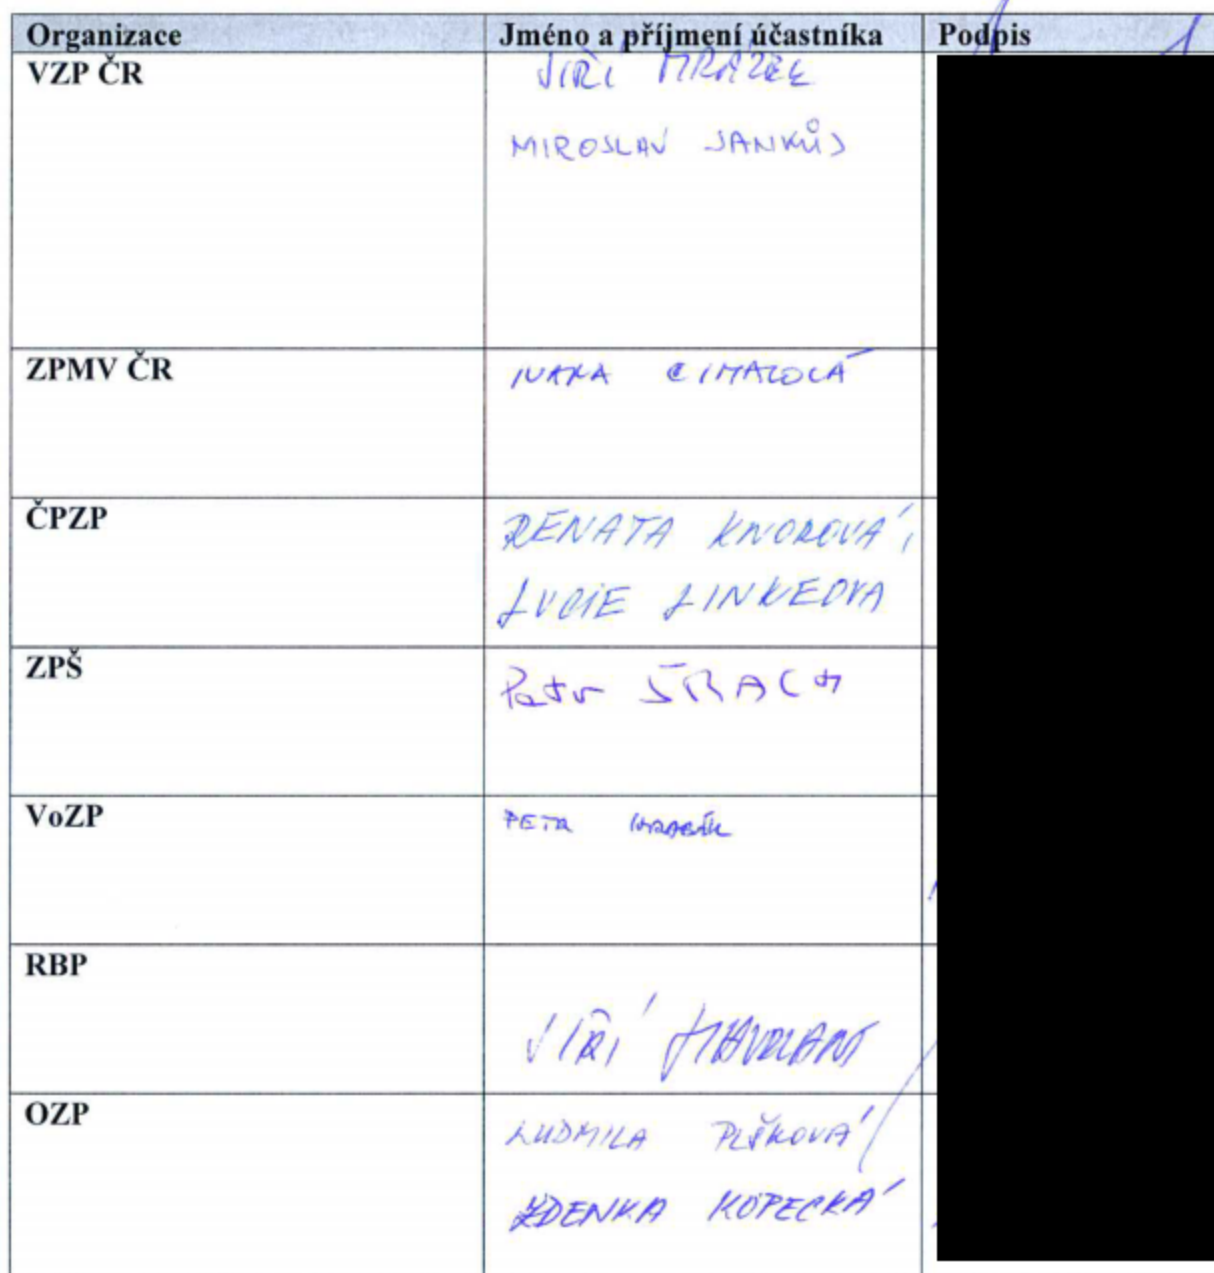 Organizace Jméno a příjmení účastníka Podpis
VZP ČR JIŘÍ MRÁZEK
MIROSLAV JANKŮJ
ZPMV ČR IVANA
ČPZP RENATA KNOROVÁ,
LUCIE LINKEOVA
ZPŠ Petr ŠRACH
VoZP PETR HRABÁK
RBP JIŘÍ
OZP LUDMILA PLŠKOVÁ
ZDENKA KOPECKÁ